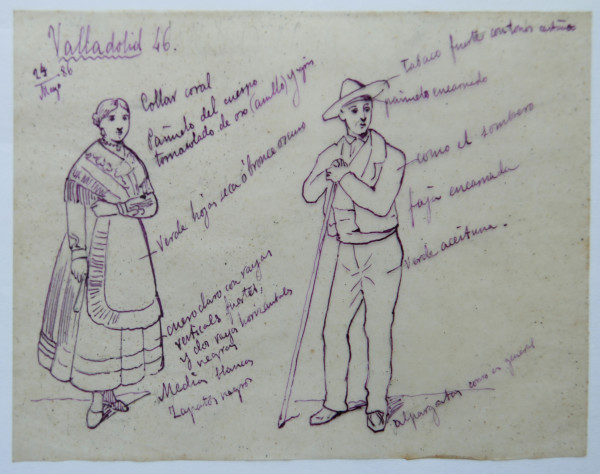 Valladolid 46.
24
Mayo 86
Collar coral
Pañuelo del cuerpo
tornasolado de oro (amarillo) y rojo
Verde hojas seca ó bronce oscuro
cuero claro con rayas
verticales fuertes,
y dos rayas horizontales
negras
Medias blancas
Zapatos negros
tabaco fuerte con tonos
pañuelo encarnado
como el sombrero
faja encarnada
Verde aceituna.
alpargatas como en general